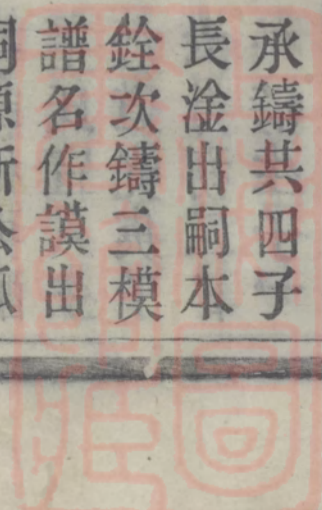 承鑄共四子
長淦出嗣本
銓次鑄三模
譜名作謨出